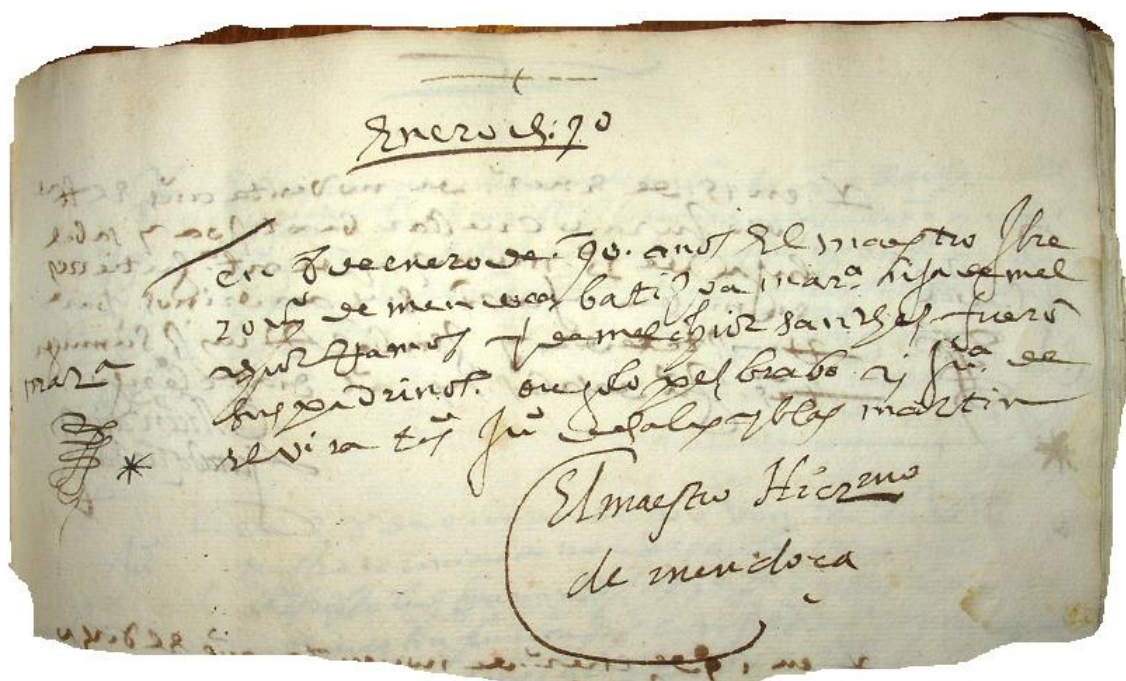 Enero de .90
En de enero de .90. años El maestro Jhe
ronimo de mendoça batiço a mar.ª hija de mel
chior Ramos y de melchior sanches fueron
sus padrinos. lopes brabo y Ju.ª de
elvira tº Juº de salas y blas martin
mar.ª
El maestro Hiermo
de mendoça